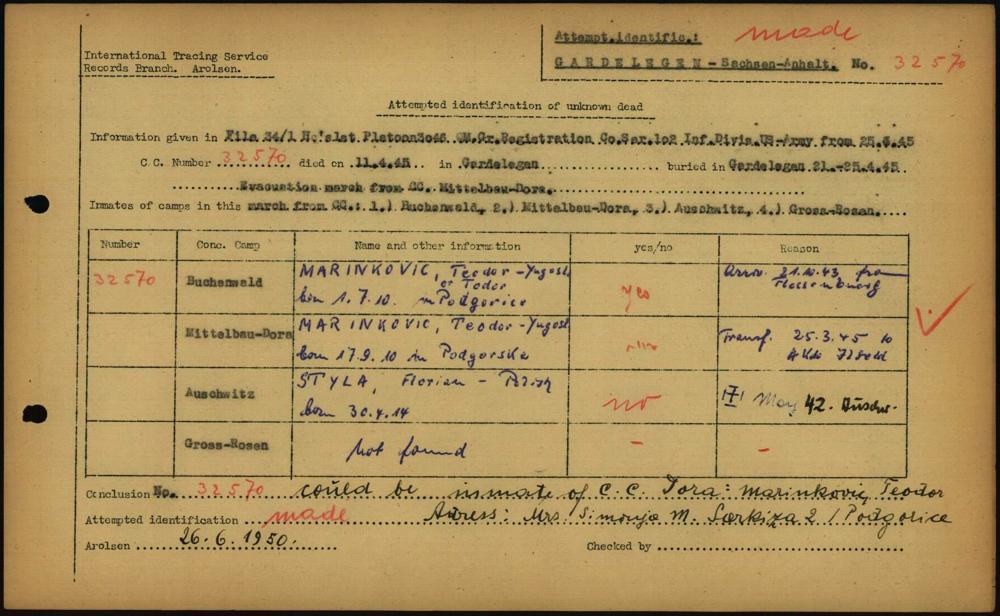 International Tracing Service
Records Branch. Arolsen.
Attempt.identific.: made
GARDELEGEN - Sachsen-Anhalt. No. 32570
Attempted identification of unknown dead
Information given in File 24/1 Platoon3046 QM.Gr.Registration Co.Ser.102 Inf.Divis.US-Army from 25.5.45
C.C. Number 32570 died on 11.4.45 in Gardelegen buried in Gardelegen 21.-25.4.45
Evacuation march from CC. Mittelbau-Dora.
Inmates of camps in this march from CC.: 1.) Buchenwald, 2.) Mittelbau-Dora, 3.) Auschwitz, 4.) Gross-Rosen.
Number Conc. Camp Name and other information yes/no Reason
32570 Buchenwald MARINKOVIC, Teodor - Yugosl. or Todor born 1.7.10. in Podgorice yes Arriv. 21.10.43, from Flossenbürg
Mittelbau-Dora MARINKOVIC, Teodor - Yugosl. born 17.9.10 in Podgorska Transf. 25.3.45 to
Auschwitz STYLA, Florian - born 30.4.14 no May 42. Auschw.
Gross-Rosen not found - -
Conclusion No. 32570 could be inmate of C.C. Dora: Marinkovic, Teodor
Attempted identification made Adress: Mrs. Simonja M. 2 / Podgorice
Arolsen 26.6.1950. Checked by